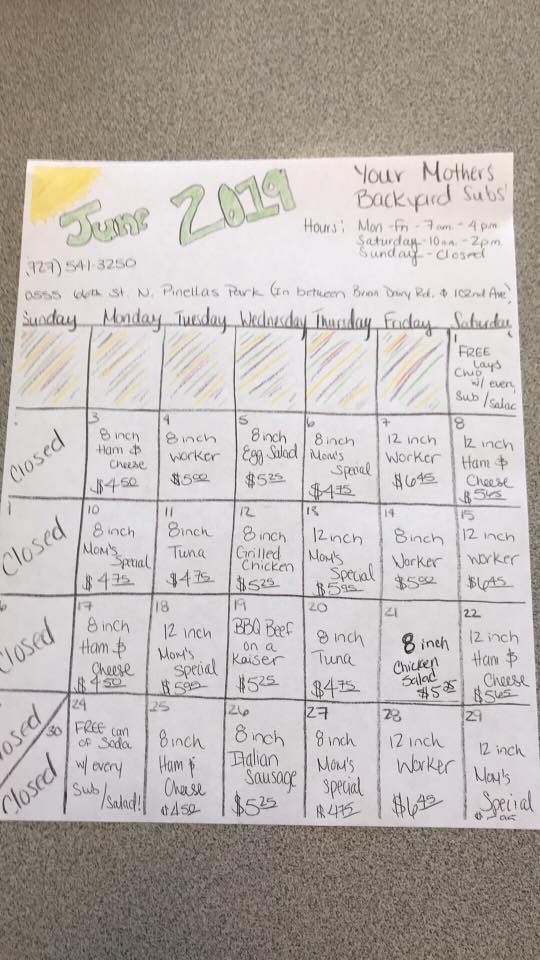 June 2019
Your Mothers
Backyard Subs'
Hours: Mon - Fri - 7am - 4pm
Saturday - 10am - 2pm
Sunday - Closed
727) 541-3250
0555 66th St. N. Pinellas Park (In between Bryan Dairy Rd. & 102nd Ave)
Sunday Monday Tuesday Wednesday Thursday Friday Saturday
1
FREE
Lays
Chip
w/ every
Sub/Salad
Closed
3
8 inch
Ham &
Cheese
$4.50
4
8 inch
Worker
$5.00
5
8 inch
Egg Salad
$5.25
6
8 inch
Mom's
Special
$4.75
7
12 inch
Worker
$6.45
8
12 inch
Ham &
Cheese
$5.65
Closed
10
8 inch
Mom's
Special
$4.75
11
8 inch
Tuna
$4.75
12
8 inch
Grilled
Chicken
$5.25
13
12 inch
Mom's
Special
$5.95
14
8 inch
Worker
$5.00
15
12 inch
Worker
$6.45
Closed
17
8 inch
Ham &
Cheese
$4.50
18
12 inch
Mom's
Special
$5.95
19
BBQ Beef
on a
Kaiser
$5.25
20
8 inch
Tuna
$4.75
21
8 inch
Chicken
Salad
$5.25
22
12 inch
Ham &
Cheese
$5.65
Closed
30
Closed
24
FREE can
of Soda
w/ every
Sub/Salad!
25
8 inch
Ham &
Cheese
$4.50
26
8 inch
Italian
Sausage
$5.25
27
8 inch
Mom's
Special
$4.75
28
12 inch
Worker
$6.45
29
12 inch
Mom's
Special